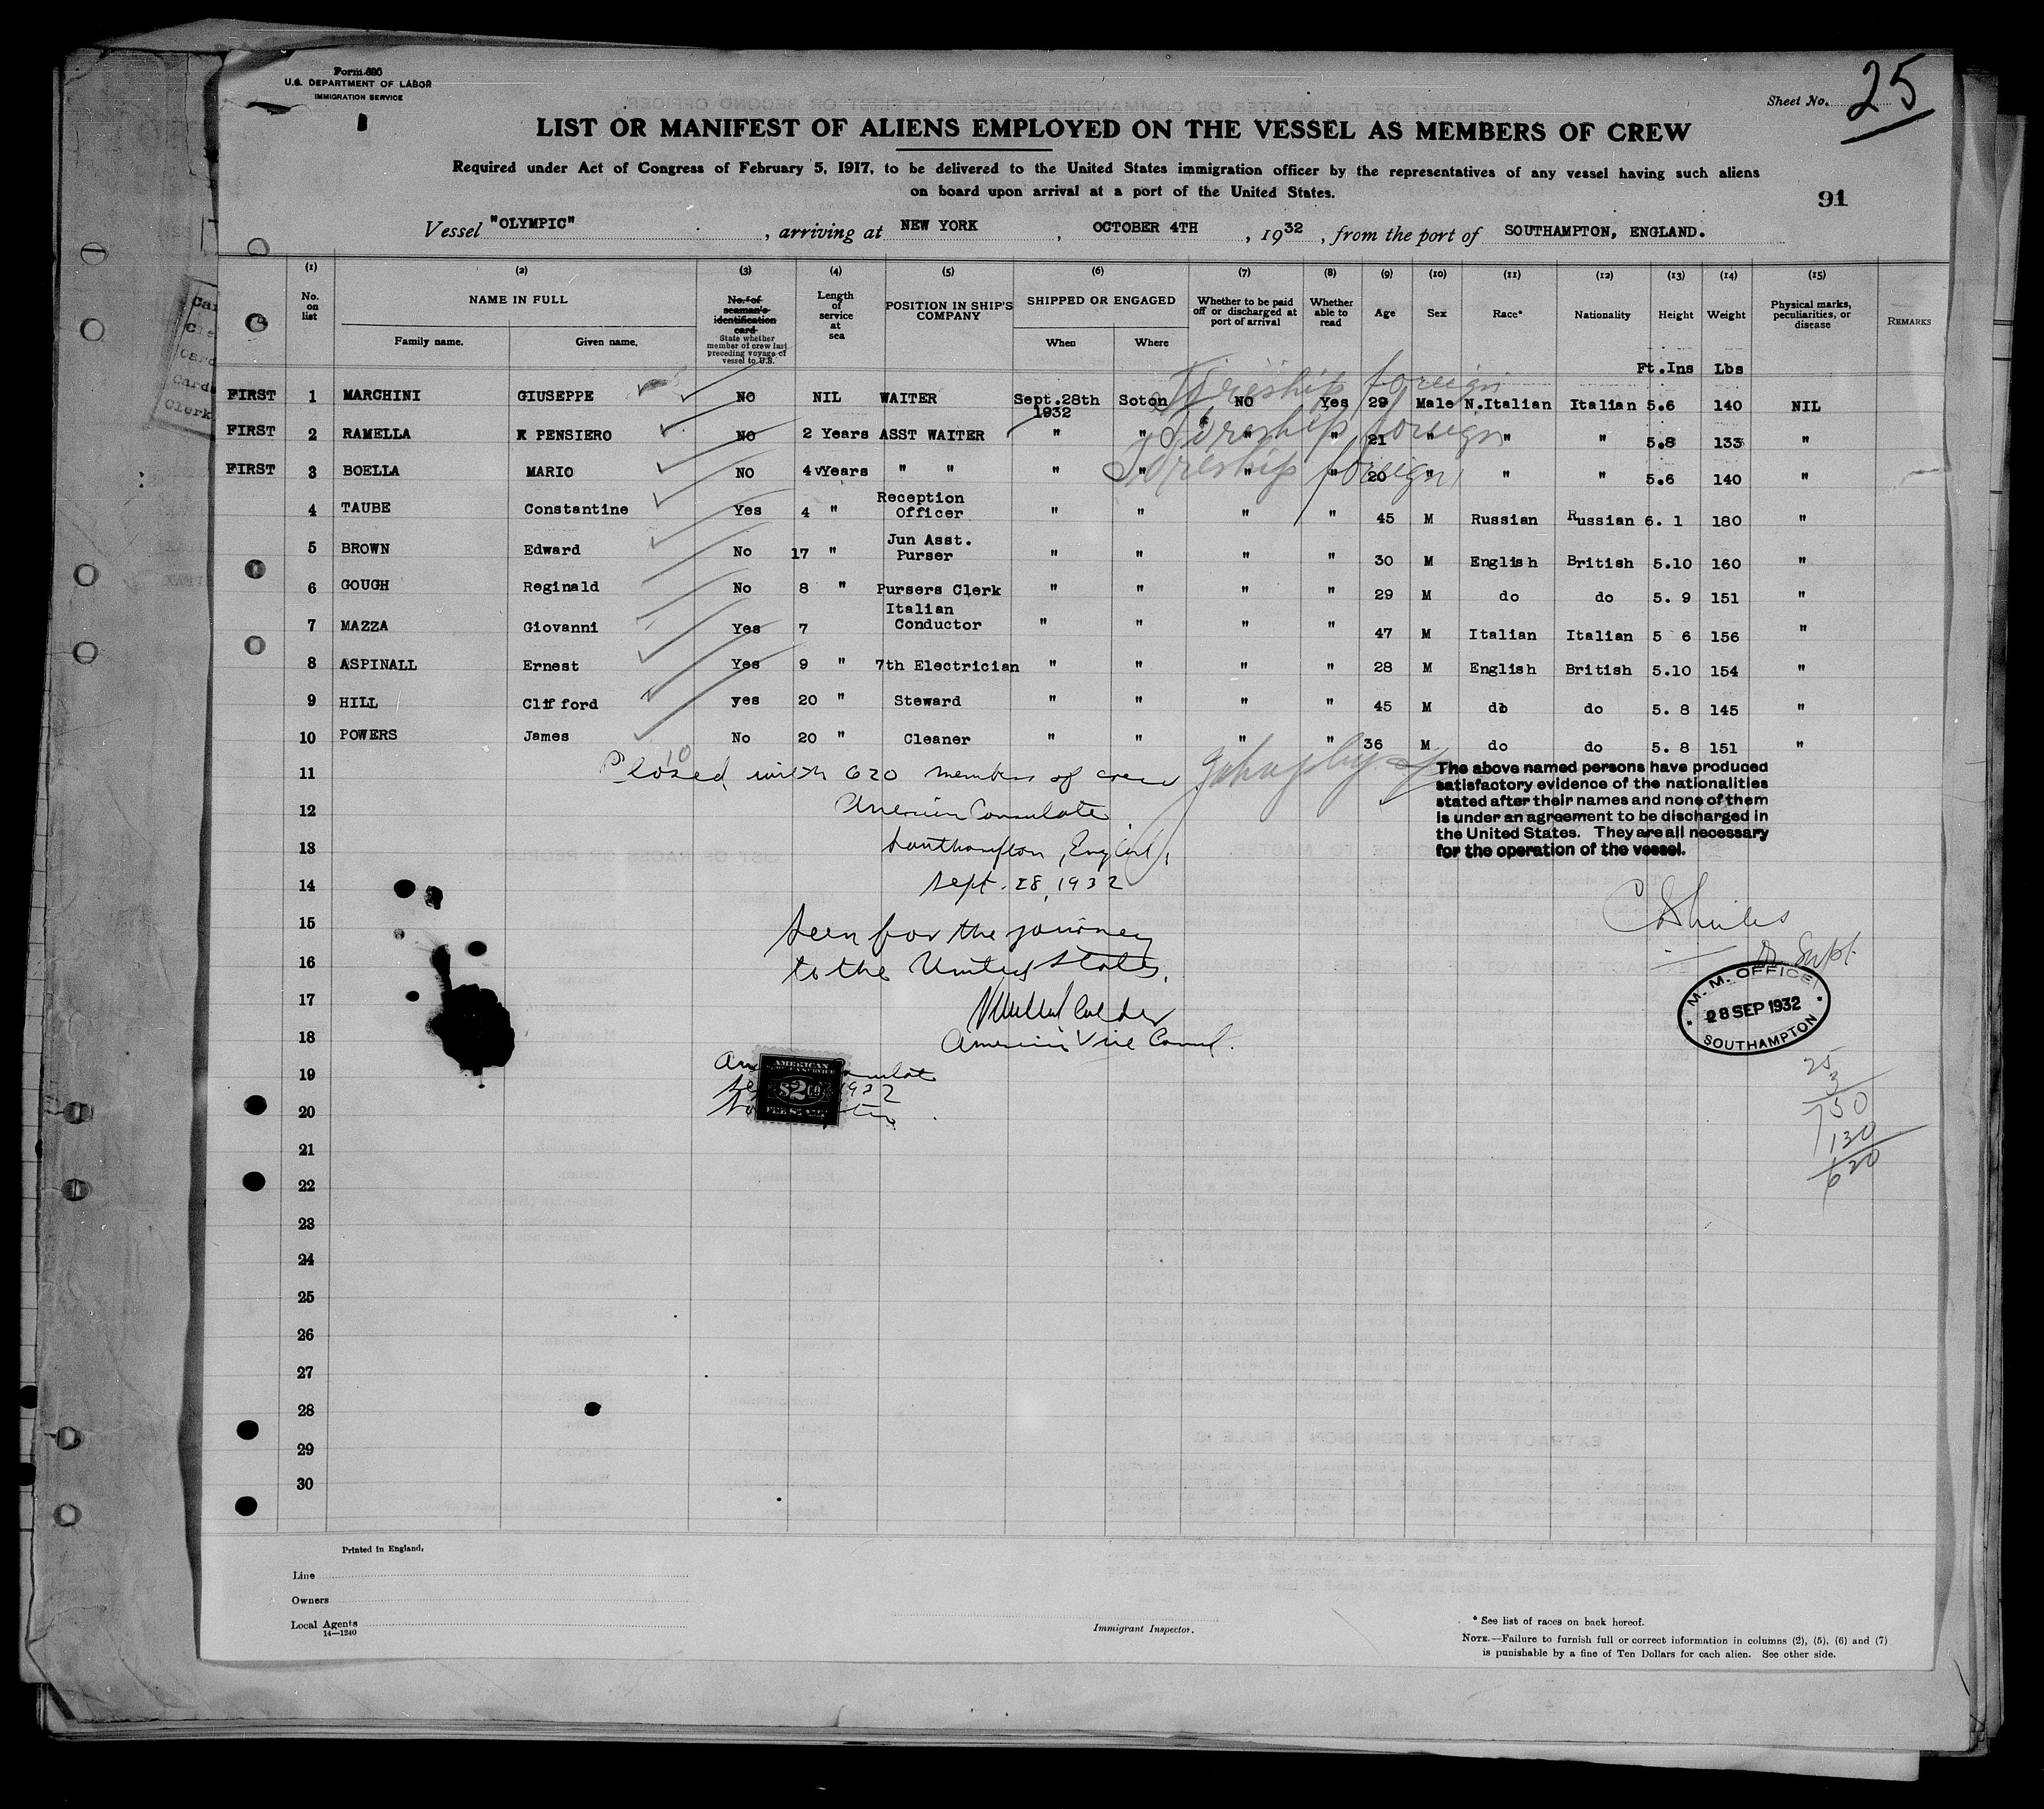 Form 680
U.S. DEPARTMENT OF LABOR
IMMIGRATION SERVICE
Sheet No. 25
LIST OR MANIFEST OF ALIENS EMPLOYED ON THE VESSEL AS MEMBERS OF CREW
Required under Act of Congress of February 5, 1917, to be delivered to the United States immigration officer by the representatives of any vessel having such aliens
on board upon arrival at a port of the United States.
91
Vessel "OLYMPIC" , arriving at NEW YORK , OCTOBER 4TH , 1932 , from the port of SOUTHAMPTON, ENGLAND.
(1) (2) (3) (4) (5) (6) (7) (8) (9) (10) (11) (12) (13) (14) (15)
No. on list
NAME IN FULL
Family name. Given name.
No. of seaman's identification card
State whether member of crew last preceding voyage of vessel to U.S.
Length of service at sea
POSITION IN SHIP'S COMPANY
SHIPPED OR ENGAGED
When Where
Whether to be paid off or discharged at port of arrival
Whether able to read
Age Sex Race* Nationality Height Weight
Physical marks, peculiarities, or disease
REMARKS
Ft.Ins Lbs
FIRST 1 MARCHINI GIUSEPPE NO NIL WAITER Sept.28th 1932 Soton NO Yes 29 Male N.Italian Italian 5.6 140 NIL
FIRST 2 RAMELLA PENSIERO NO 2 Years ASST WAITER " " " " 21 " " " 5.8 133 "
FIRST 3 BOELLA MARIO NO 4 Years " " " " " " 20 " " " 5.6 140 "
4 TAUBE Constantine Yes 4 " Reception Officer " " " " 45 M Russian Russian 6. 1 180 "
5 BROWN Edward No 17 " Jun Asst. Purser " " " " 30 M English British 5.10 160 "
6 GOUGH Reginald No 8 " Pursers Clerk " " " " 29 M do do 5. 9 151 "
7 MAZZA Giovanni Yes 7 Italian Conductor " " " " 47 M Italian Italian 5 6 156 "
8 ASPINALL Ernest Yes 9 " 7th Electrician " " " " 28 M English British 5.10 154 "
9 HILL Clifford yes 20 " Steward " " " " 45 M do do 5. 8 145 "
10 POWERS James No 20 " Cleaner " " " " 36 M do do 5. 8 151 "
10
11 Closed with 620 members of crew
12 American Consulate
13 Southampton, England,
14 Sept. 28, 1932
The above named persons have produced
satisfactory evidence of the nationalities
stated after their names and none of them
is under an agreement to be discharged in
the United States. They are all necessary
for the operation of the vessel.
15 Seen for the journey
16 to the United States.
17
18 American Vice Consul.
Supt
M. M. OFFICE
28 SEP 1932
SOUTHAMPTON
19
20
AMERICAN
$2.00
FEE STAMP
1932
25
3
750
130
620
21
22
23
24
25
26
27
28
29
30
Printed in England.
Line
Owners
Local Agents
14—1240
Immigrant Inspector.
* See list of races on back hereof.
NOTE.—Failure to furnish full or correct information in columns (2), (5), (6) and (7)
is punishable by a fine of Ten Dollars for each alien. See other side.